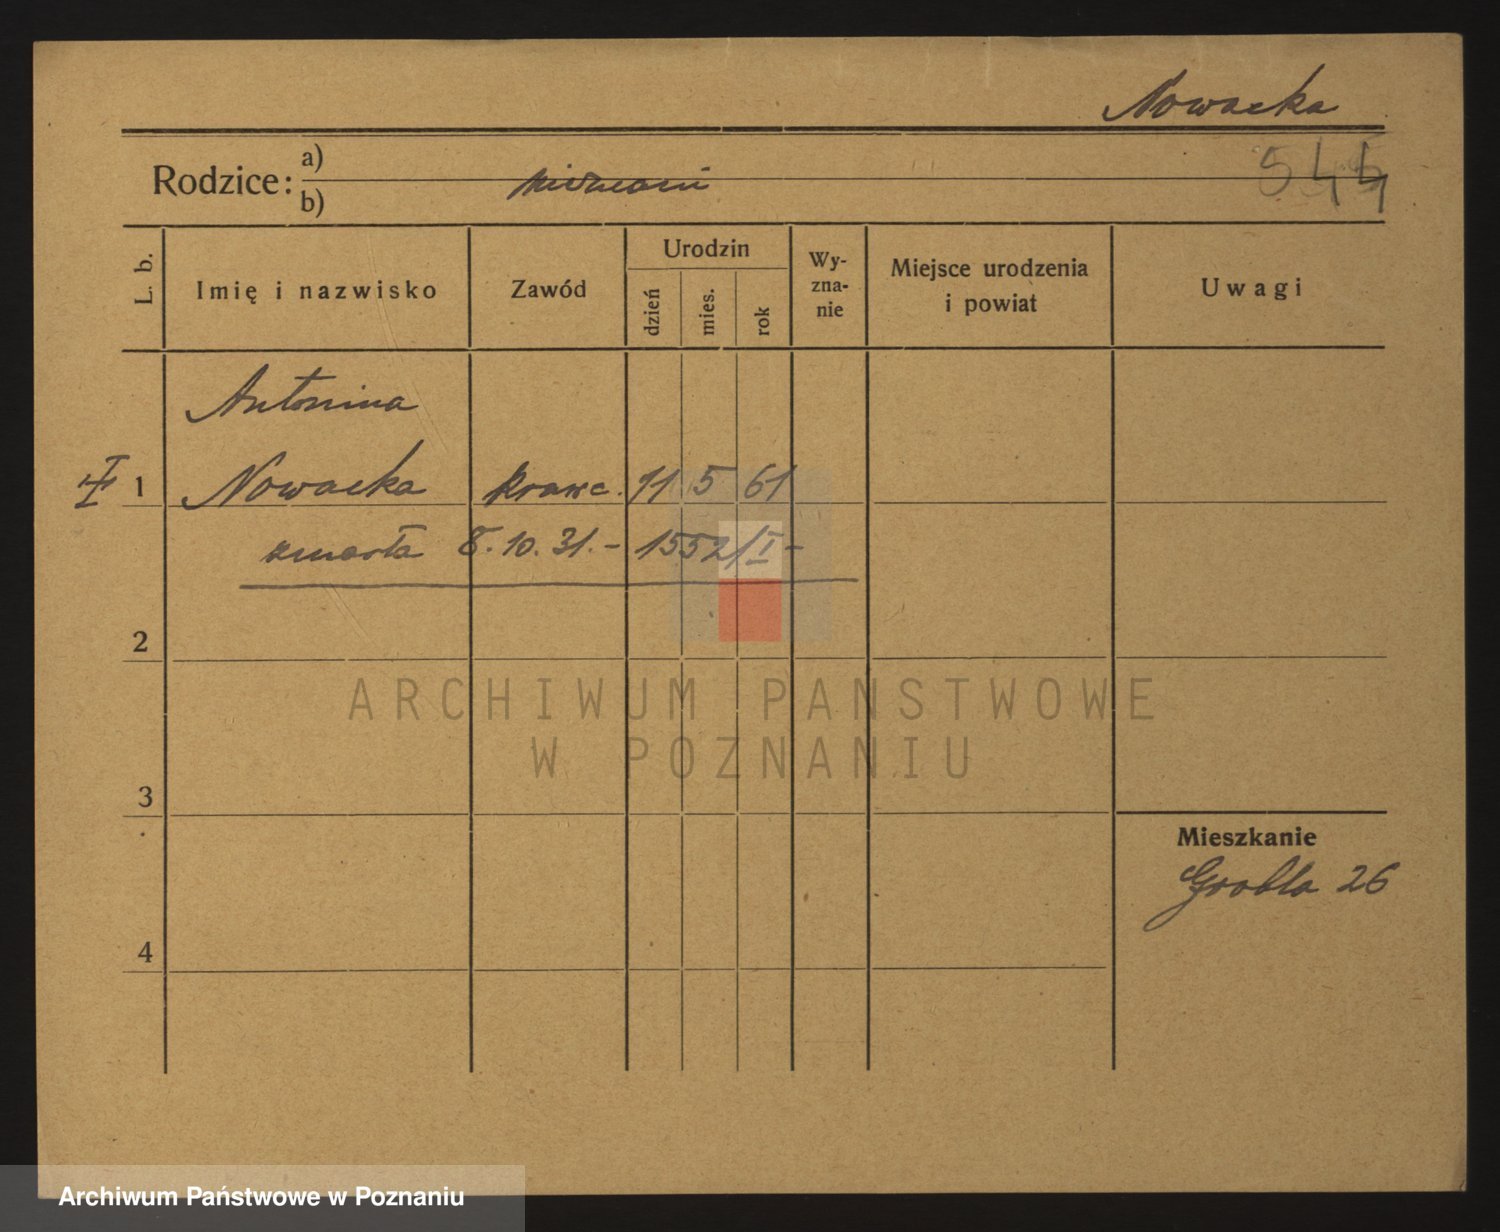 Nowacka
Rodzice: a)
b)
nieznani
544
L. b.
Imię i nazwisko
Zawód
Urodzin
dzień
mies.
rok
Wy-
zna-
nie
Miejsce urodzenia
i powiat
Uwagi
Antonina
1 Nowacka krawc. 11 5 61
zmarła 8.10.31.- 1552/I -
2
3
4
Mieszkanie
Grobla 26
ARCHIWUM PAŃSTWOWE
W POZNANIU
Archiwum Państwowe w Poznaniu